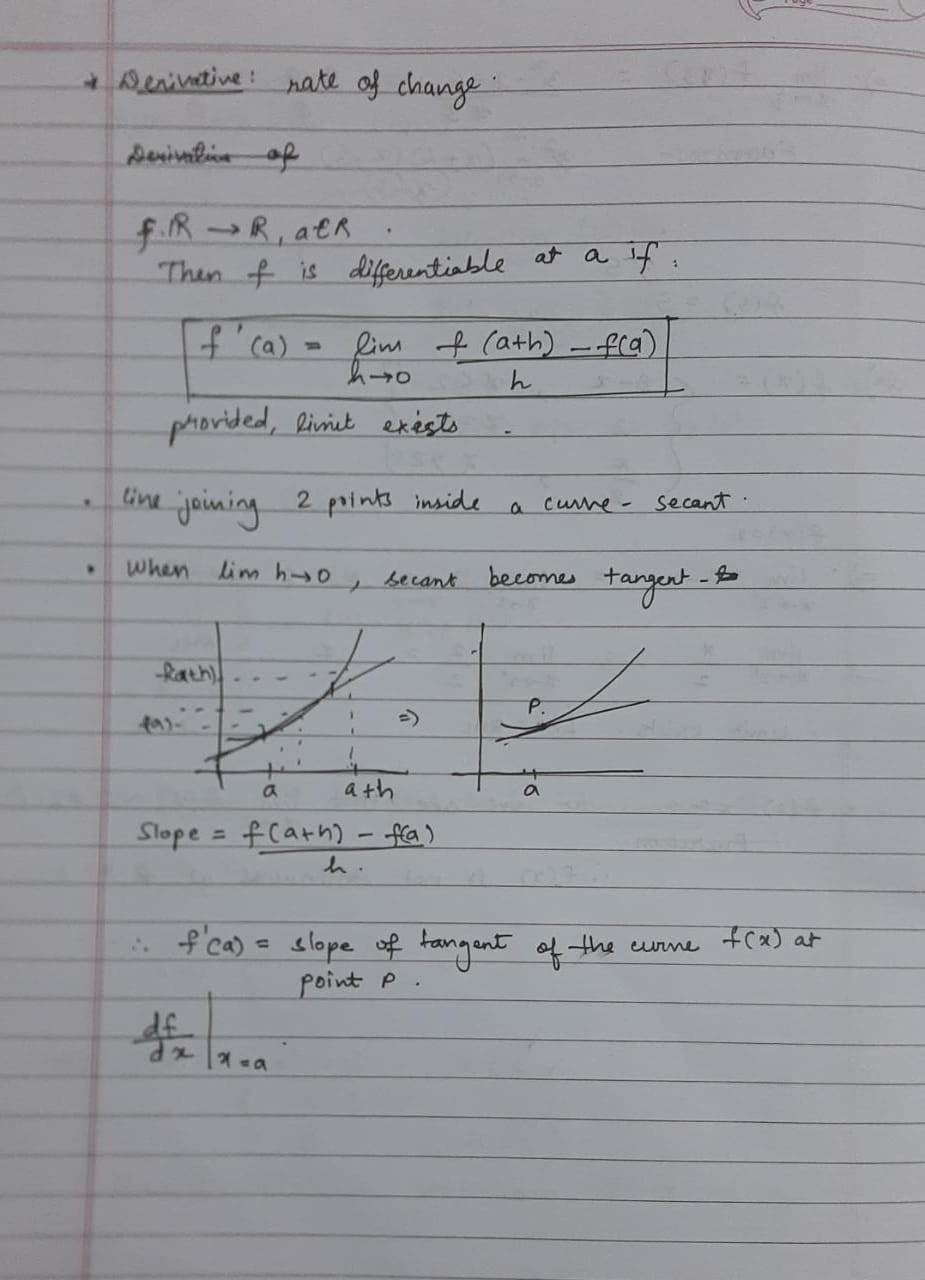 * Derivative: rate of change.
Derivative of
f: R → R, a ∈ R.
Then f is differentiable at a if:
f'(a) = lim f(a+h) - f(a)
h→0 h
provided, limit exists.
• line joining 2 points inside a curve - secant.
• When lim h→0, secant becomes tangent -
f(a+h)
P.
f(a)
⇒)
a a+h a
Slope = f(a+h) - f(a)
h.
∴ f'(a) = slope of tangent of the curve f(x) at
point P.
df
dx | x=a